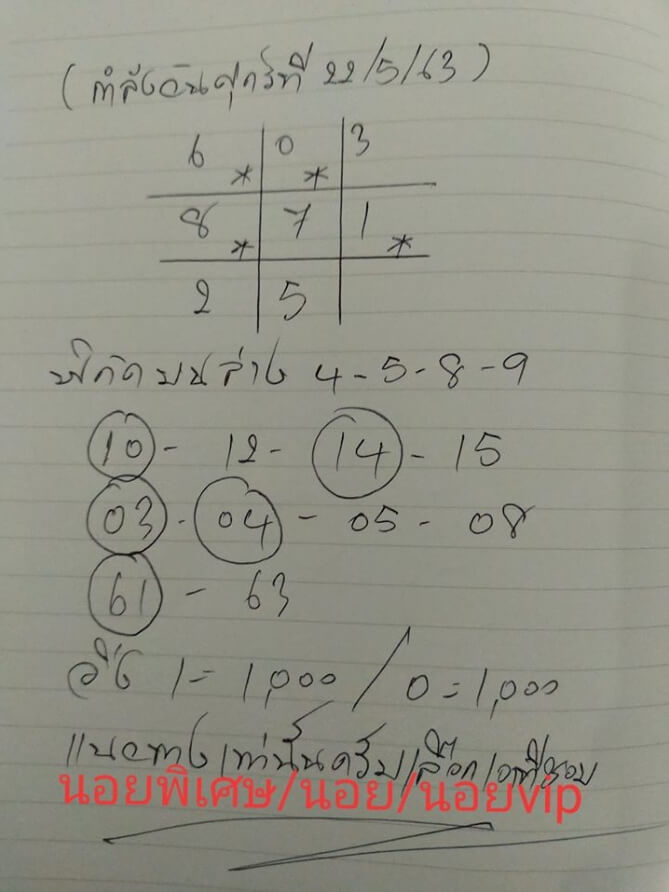 (กำลังวันศุกร์ที่ 22/5/63)
6 * 0 * 3
8 * 7 1 *
2 5
พิกัดบนล่าง 4-5-8-9
10 - 12 - 14 - 15
03 - 04 - 05 - 08
61 - 63
วิ่ง 1 = 1,000 / 0 = 1,000
แนวทางเท่านั้นครับเลือกเอาที่ชอบ
นอยพิเศษ/นอย/นอยvip